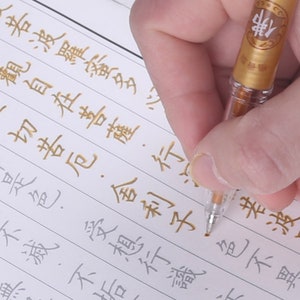 若波羅蜜多心
觀自在菩薩.行若波
切苦厄.舍利子.色不異
是色.受想行識.
不滅.不垢
無
佛